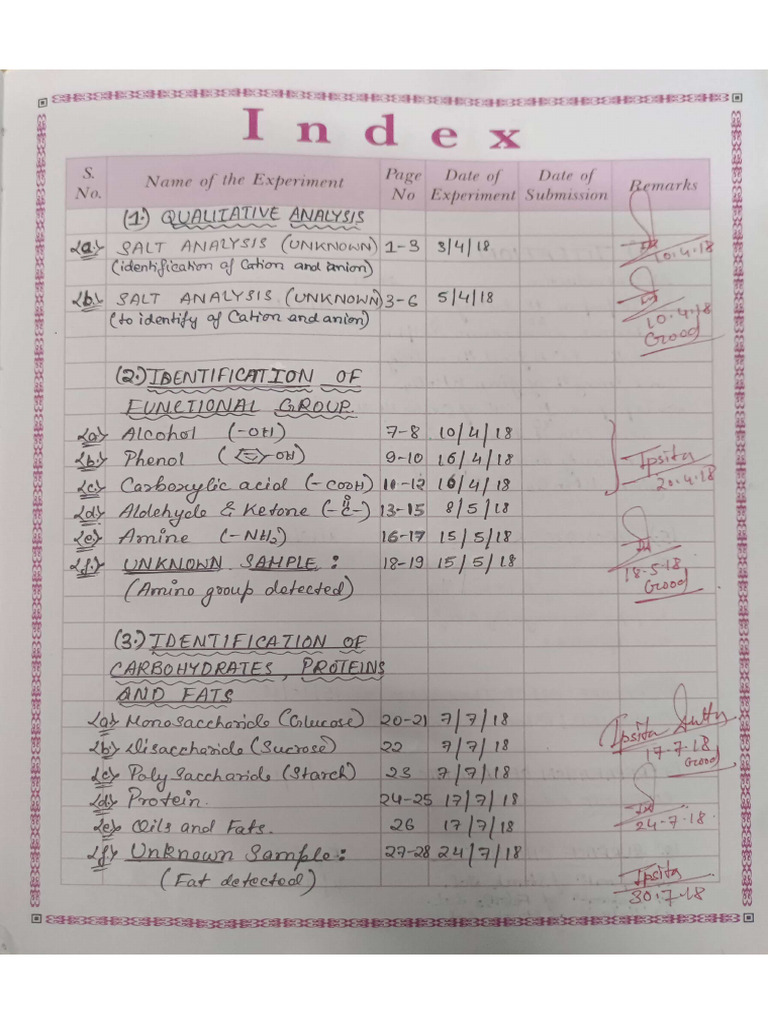 Index
S. No. Name of the Experiment Page No Date of Experiment Date of Submission Remarks
(1.) QUALITATIVE ANALYSIS
(a) SALT ANALYSIS (UNKNOWN) 1-3 3/4/18
(identification of Cation and anion) 10.4.18
(b) SALT ANALYSIS (UNKNOWN) 3-6 5/4/18
(to identify of Cation and anion) 10.4.18
Good
(2.) IDENTIFICATION OF
FUNCTIONAL GROUP.
(a) Alcohol (-OH) 7-8 10/4/18
(b) Phenol ( -OH) 9-10 16/4/18 Ipsita
(c) Carboxylic acid (-COOH) 10-12 16/4/18 20.4.18
(d) Aldehyde & Ketone (-C-) 13-15 8/5/18
O
(e) Amine (-NH2) 16-17 15/5/18
(f.) UNKNOWN SAMPLE : 18-19 15/5/18 18.5.18
(Amino group detected) Good
(3.) IDENTIFICATION OF
CARBOHYDRATES, PROTEINS
AND FATS
(a) Monosaccharide (Glucose) 20-21 7/7/18 Ipsita
(b) Disaccharide (Sucrose) 22 7/7/18 17.7.18
Good
(c) Polysaccharide (Starch) 23 7/7/18
(d) Protein. 24-25 17/7/18
(e) Oils and Fats. 26 17/7/18 24.7.18.
(f.) Unknown Sample : 27-28 24/7/18
(Fat detected) Ipsita
30.7.18